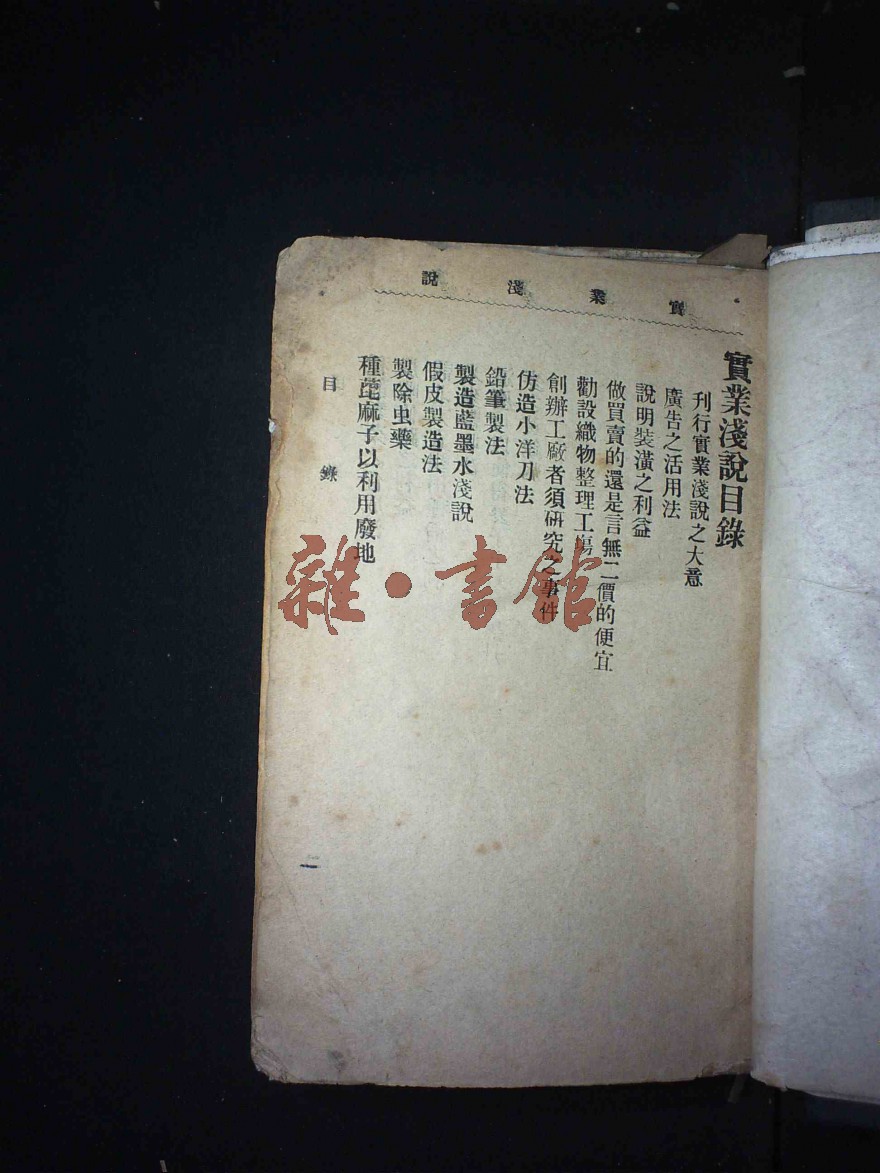 實業淺說
實業淺說目錄
刊行實業淺說之大意
廣告之活用法
說明裝潢之利益
做買賣的還是言無二價的便宜
勸設織物整理工場
創辦工廠者須研究之事件
仿造小洋刀法
鉛筆製法
製造藍墨水淺說
假皮製造法
製除虫藥
種蓖麻子以利用廢地
目錄
一
雜·書館